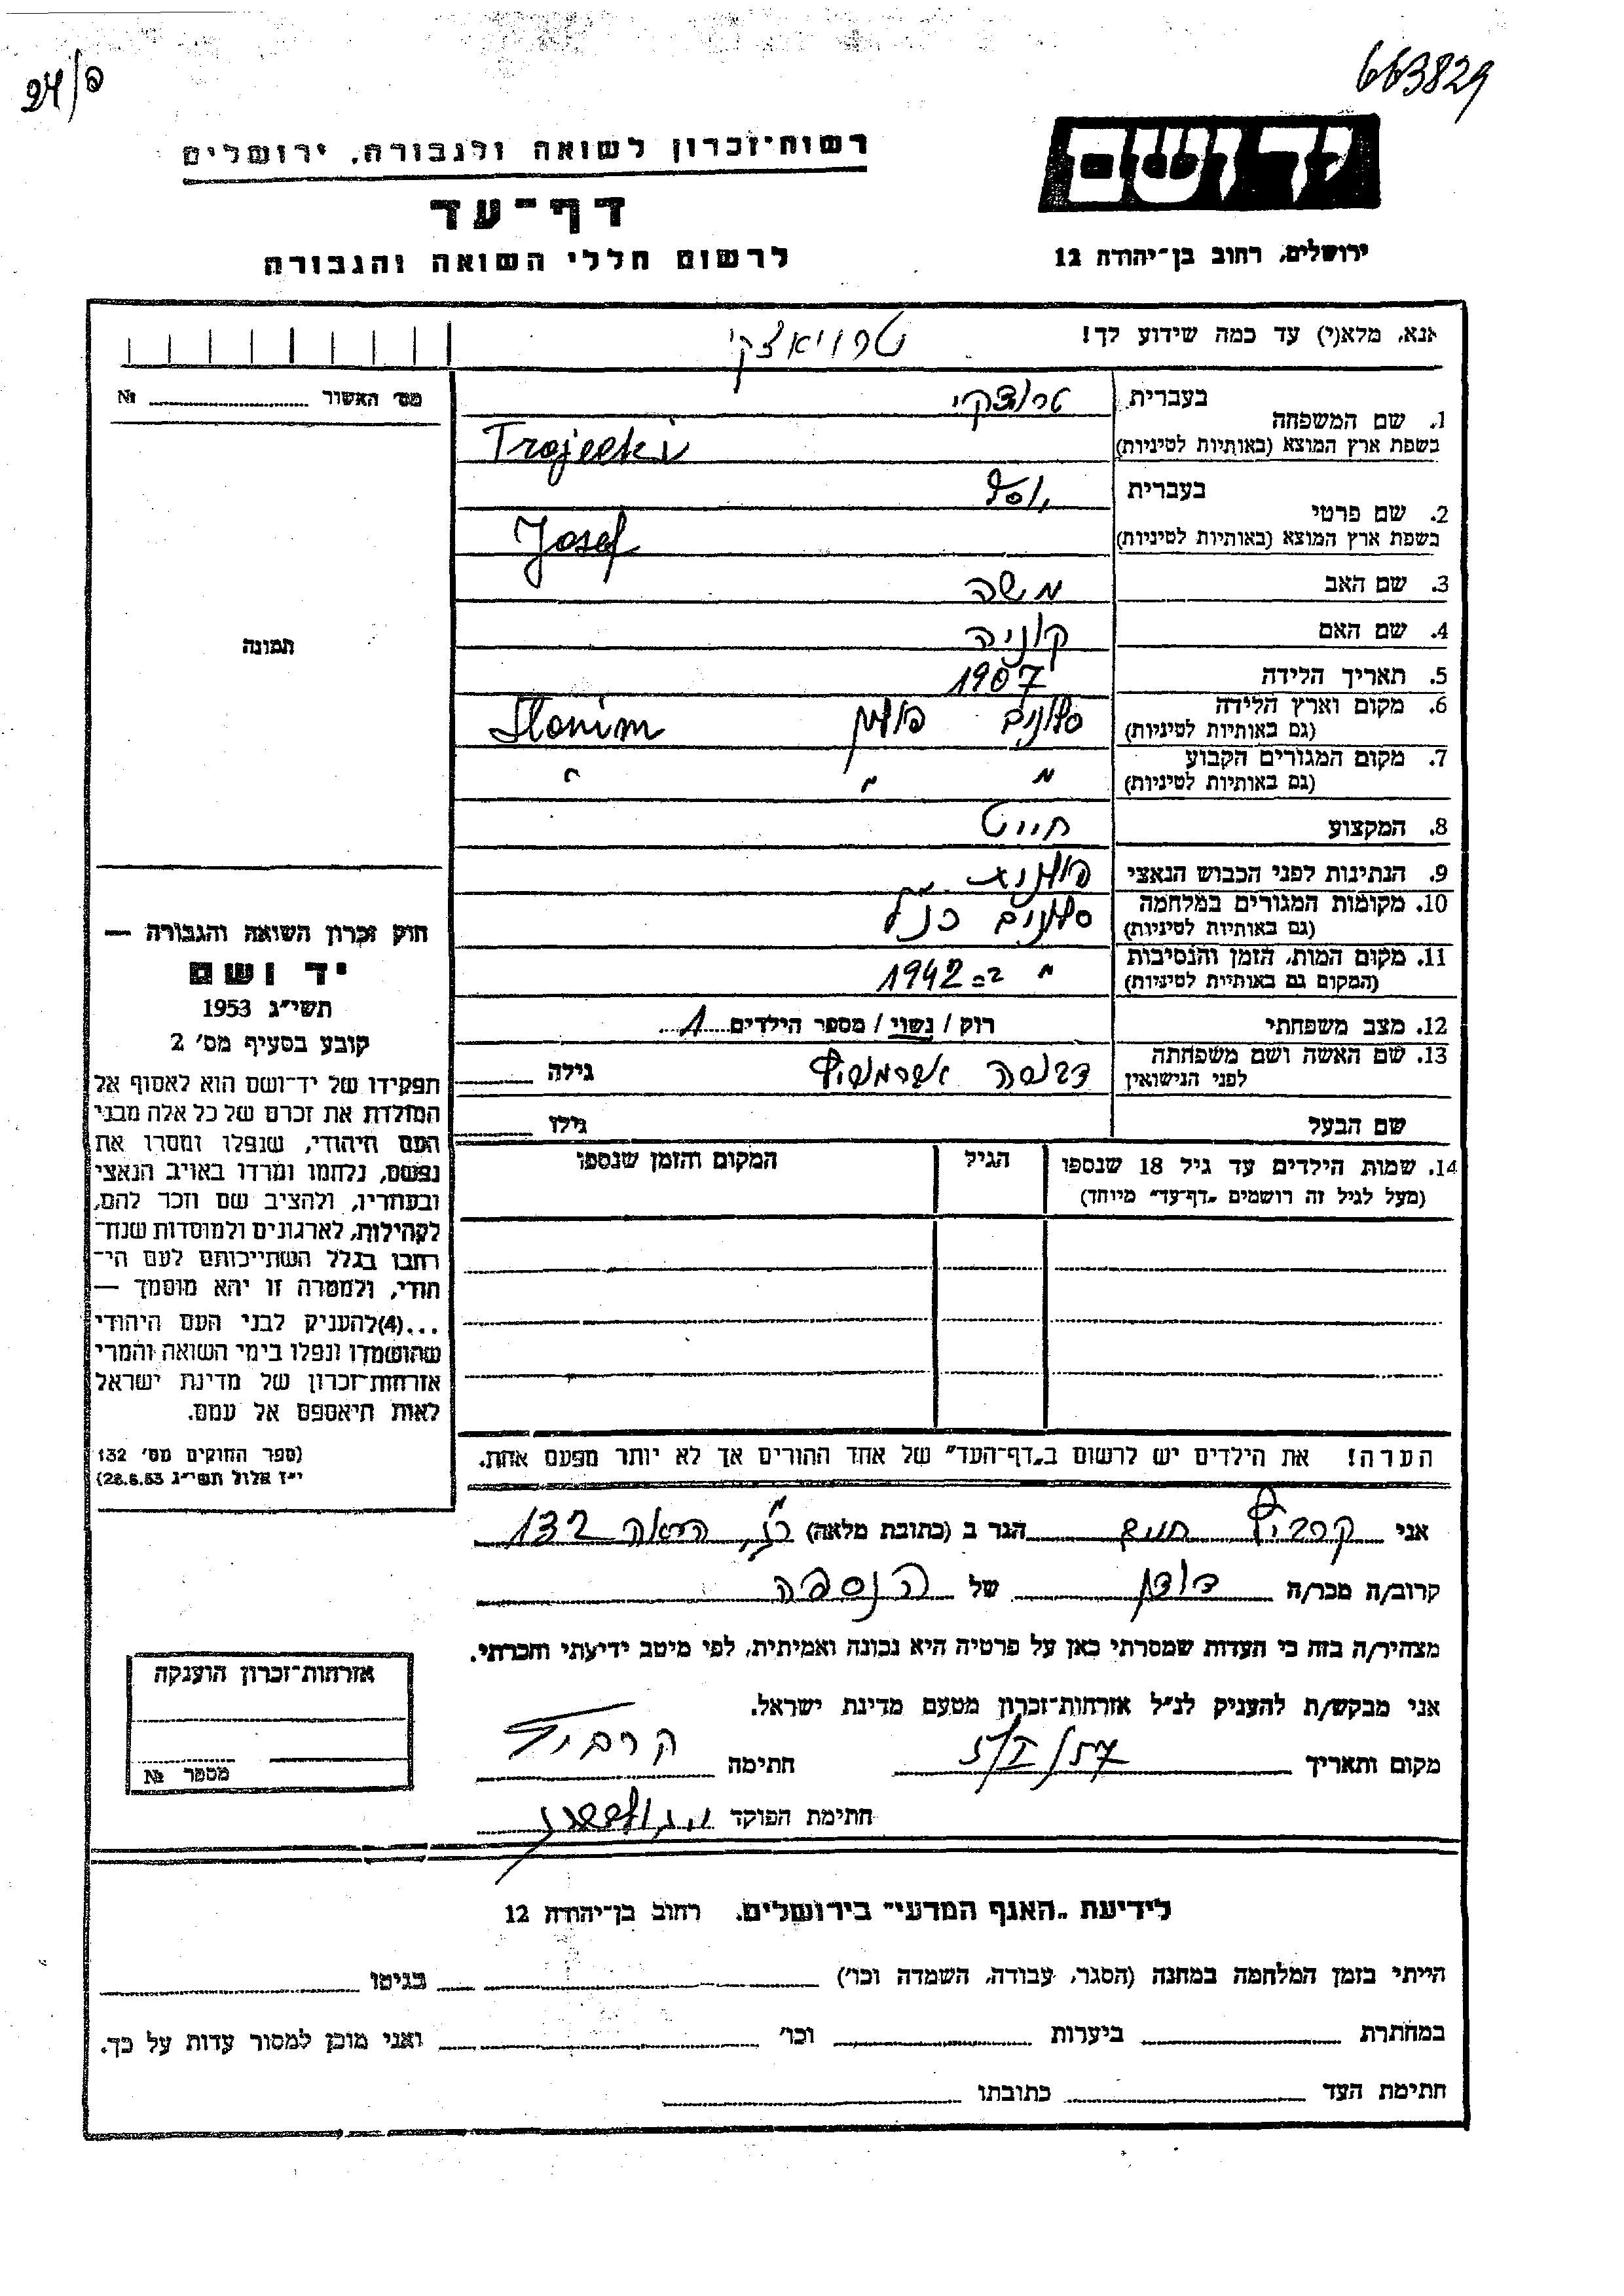 663829
24/פ
יד ושם
ירושלים, רחוב בן־יהודה 12
רשות־זכרון לשואה ולגבורה, ירושלים
דף־עד
לרשום חללי השואה והגבורה
אנא, מלא(י) עד כמה שידוע לך!
טרויאצקי
מס׳ האשור № 
1. שם המשפחה בעברית טרוצקי
בשפת ארץ המוצא (באותיות לטיניות) Trojecki
2. שם פרטי בעברית יוסף
בשפת ארץ המוצא (באותיות לטיניות) Josef
3. שם האב משה
4. שם האם
5. תאריך הלידה 1907
6. מקום וארץ הלידה סלונים פולין Slonim
(גם באותיות לטיניות)
7. מקום המגורים הקבוע " " "
(גם באותיות לטיניות)
8. המקצוע חייט
9. הנתינות לפני הכבוש הנאצי פולנית
10. מקומות המגורים במלחמה סלונים כנ"ל
(גם באותיות לטיניות)
11. מקום המות, הזמן והנסיבות " ב־1942
(המקום גם באותיות לטיניות)
12. מצב משפחתי רוק / נשוי / מספר הילדים 1
13. שם האשה ושם משפחתה גילה
לפני הנישואין
שם הבעל גילו
14. שמות הילדים עד גיל 18 שנספו הגיל המקום והזמן שנספו
(מעל לגיל זה רושמים „דף־עד" מיוחד)
הערה! את הילדים יש לרשום ב„דף־העד" של אחד ההורים אך לא יותר מפעם אחת.
תמונה
חוק זכרון השואה והגבורה —
יד ושם
תשי״ג 1953
קובע בסעיף מס׳ 2
תפקידו של יד־ושם הוא לאסוף אל
המולדת את זכרם של כל אלה מבני
העם היהודי, שנפלו ומסרו את
נפשם, נלחמו ומרדו באויב הנאצי
ובעוזריו, ולהציב שם וזכר להם,
לקהילות, לארגונים ולמוסדות שנח־
רחבו בגלל השתייכותם לעם הי־
הודי, ולמטרה זו יהא מוסמך —
...(4)להעניק לבני העם היהודי
שהושמדו ונפלו בימי השואה והמרי
אזרחות־זכרון של מדינת ישראל
לאות היאספם אל עמם.
(ספר החוקים מס׳ 132
י״ז אלול תשי״ג 28.8.53)
אני הגר ב (כתובת מלאה) הרואה 132
קרוב/ה מכר/ה דודן של הנספה
מצהיר/ה בזה כי העדות שמסרתי כאן על פרטיה היא נכונה ואמיתית, לפי מיטב ידיעתי והכרתי.
אני מבקש/ת להעניק לנ״ל אזרחות־זכרון מטעם מדינת ישראל.
מקום ותאריך חתימה
חתימת הפוקד
אזרחות־זכרון הוענקה
מספר №
לידיעת „האגף המדעי" בירושלים, רחוב בן־יהודה 12
הייתי בזמן המלחמה במחנה (הסגר, עבודה, השמדה וכו׳) בגיטו
במחתרת ביערות וכו׳ ואני מוכן למסור עדות על כך.
חתימת העד כתובתו